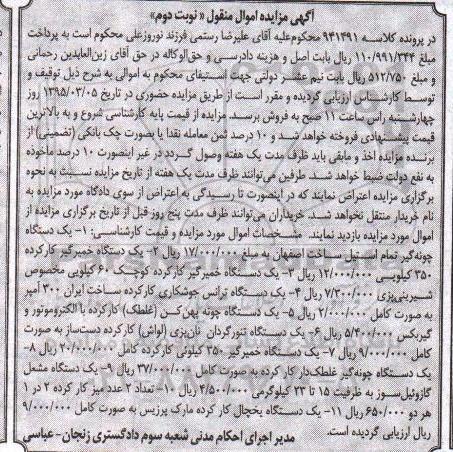 آگهی مزایده اموال منقول « نوبت دوم»
در پرونده کلاسه ۹۴۱۴۹۱ محکوم‌علیه آقای علیرضا رستمی فرزند نوروزعلی محکوم است به پرداخت
مبلغ ۱۱۰/۹۹۱/۳۴۴ ریال بابت اصل و هزینه دادرسی و حق‌الوکاله در حق آقای زین‌العابدین رحمانی
و مبلغ ۵۱۲/۷۵۰ ریال بابت نیم عشر دولتی جهت استیفای محکوم به اموالی به شرح ذیل توقیف و
توسط کارشناس ارزیابی گردیده و مقرر است از طریق مزایده حضوری در تاریخ ۱۳۹۵/۰۳/۰۵ روز
چهارشنبه راس ساعت ۱۱ صبح به فروش برسد. مزایده از قیمت پایه کارشناسی شروع و به بالاترین
قیمت پیشنهادی فروخته خواهد شد و ۱۰ درصد ثمن معامله نقدا یا بصورت چک بانکی (تضمینی) از
برنده مزایده اخذ و مابقی باید ظرف مدت یک هفته وصول گردد در غیر اینصورت ۱۰ درصد ماخوذه
به نفع دولت ضبط خواهد شد. طرفین می‌توانند ظرف مدت یک هفته از تاریخ مزایده نسبت به نحوه
برگزاری مزایده اعتراض نمایند که در اینصورت تا رسیدگی به اعتراض از سوی دادگاه مورد مزایده به
نام خریدار منتقل نخواهد شد. خریداران می‌توانند ظرف مدت پنج روز قبل از تاریخ برگزاری مزایده از
اموال مورد مزایده بازدید نمایند. مشخصات اموال مورد مزایده و قیمت کارشناسی: ۱- یک دستگاه
چونه‌گیر تمام استیل ساخت اصفهان به مبلغ ۱۷/۰۰۰/۰۰۰ ریال ۲- یک دستگاه خمیرگیر کارکرده
۳۵۰ کیلویی ۱۲/۰۰۰/۰۰۰ ریال ۳- یک دستگاه خمیر گیر کارکرده کوچک ۶۰ کیلویی مخصوص
شیرینی‌پزی ۷/۳۰۰/۰۰۰ ریال ۴- یک دستگاه ترانس جوشکاری کارکرده ساخت ایران ۳۰۰ آمپر
به صورت کامل ۲/۰۰۰/۰۰۰ ریال ۵- یک دستگاه چونه پهن‌کن (غلطک) کارکرده با الکتروموتور و
گیربکس ۵/۴۰۰/۰۰۰ ریال ۶- یک دستگاه تنورگردان نان‌پزی (لواش) کارکرده دست‌ساز به صورت
کامل ۹/۰۰۰/۰۰۰ ریال ۷- یک دستگاه خمیرگیر ۳۵۰ کیلوئی کارکرده کامل ۲۰/۰۰۰/۰۰۰ ریال ۸-
یک دستگاه چونه‌گیر غلطک‌دار کارکرده به صورت کامل ۳۷/۰۰۰/۰۰۰ ریال ۹- یک دستگاه مشعل
گازوئیل‌سوز به ظرفیت ۱۵ تا ۲۳ کیلوگرمی ۴/۵۰۰/۰۰۰ ریال ۱۰- تعداد ۲ عدد میز کارکرده ۲ در ۱
هر دو ۶۵۰/۰۰۰ ریال ۱۱- یک دستگاه یخچال کارکرده مارک پرزیس به صورت کامل ۹/۰۰۰/۰۰۰
ریال ارزیابی گردیده است. مدیر اجرای احکام مدنی شعبه سوم دادگستری زنجان- عباسی